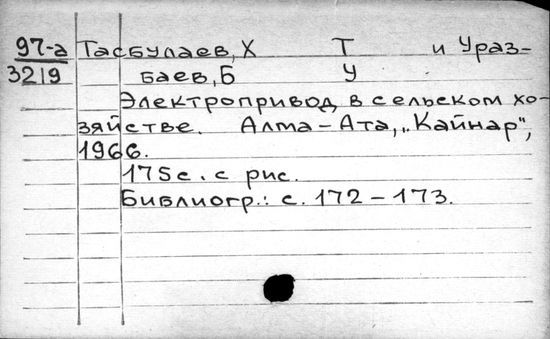 97-а Тасбулаев, Х Т и Ураз-
3219 баев, Б У
Электропривод в сельском хо-
зяйстве. Алма-Ата, „Кайнар",
1966.
175с. с рис.
Библиогр.: с. 172-173.